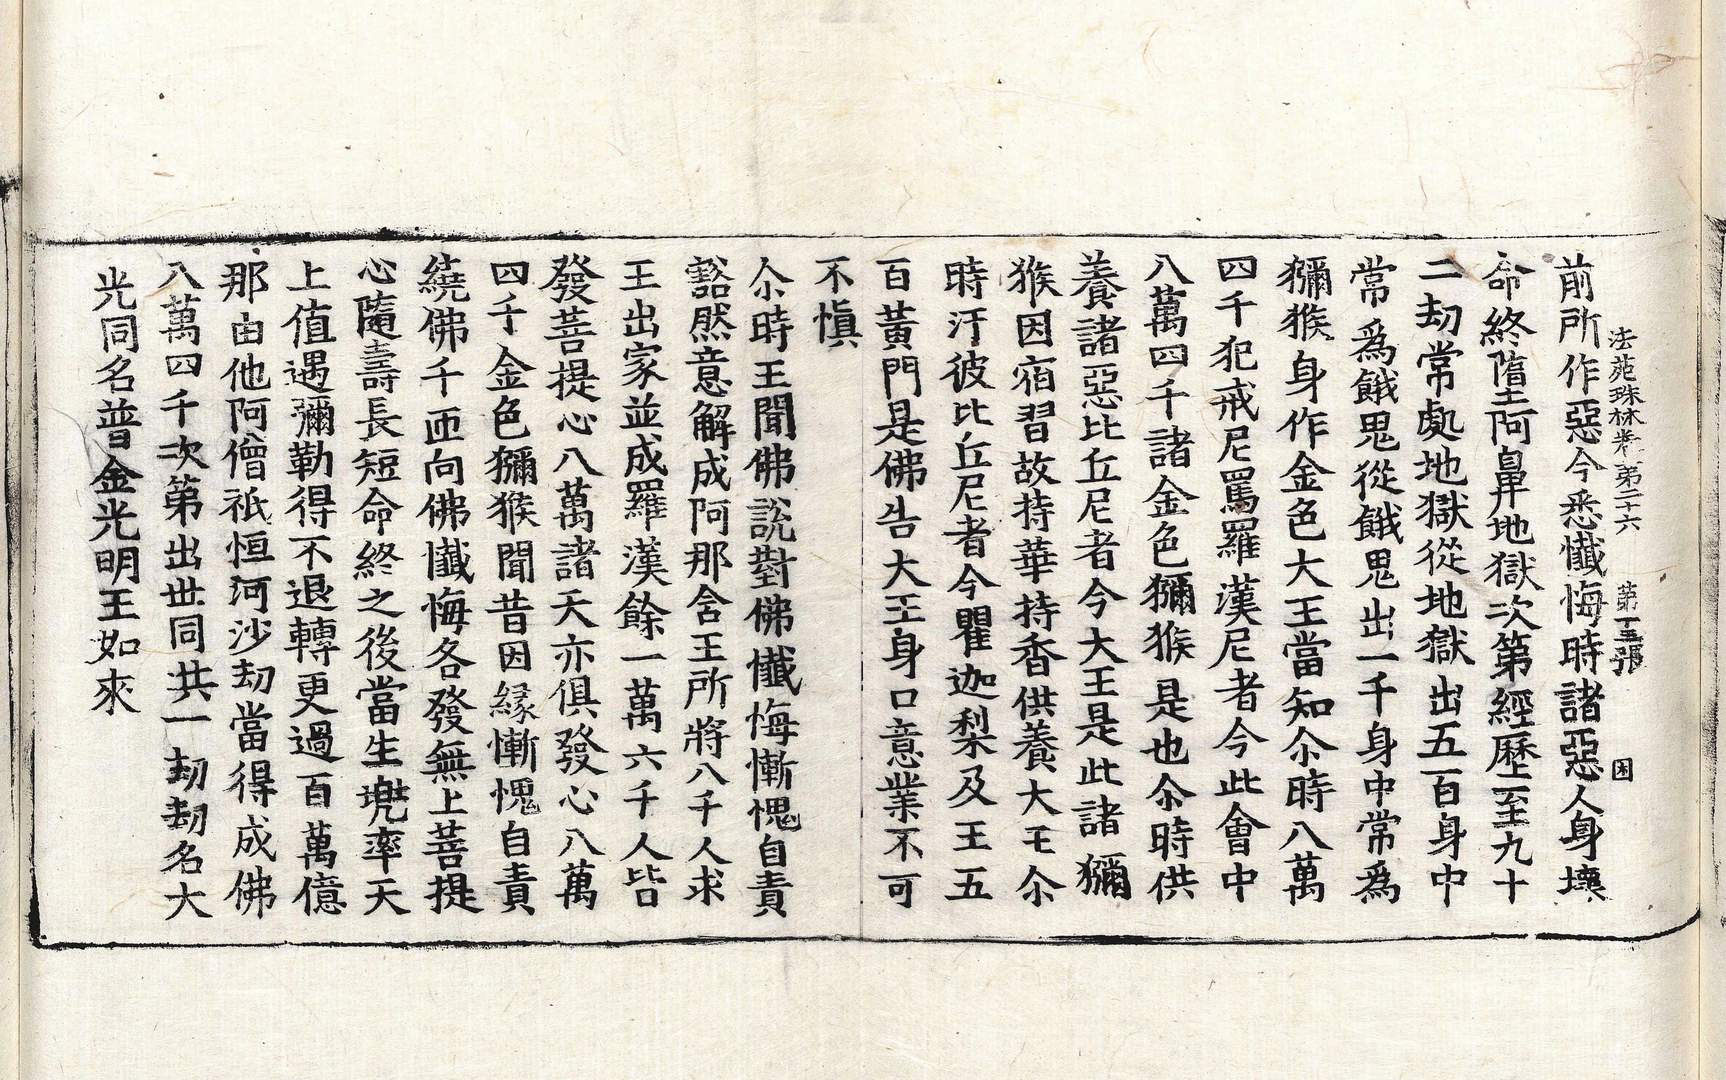 法苑珠林卷第二十六　第十五張　困
前所作惡今悉懺悔時諸惡人身壞
命終墮阿鼻地獄次第經歷至九十
二劫常處地獄從地獄出五百身中
常爲餓鬼從餓鬼出一千身中常爲
獼猴身作金色大王當知尒時八萬
四千犯戒尼罵羅漢尼者今此會中
八萬四千諸金色獼猴是也尒時供
養諸惡比丘尼者今大王是此諸獼
猴因宿習故持華持香供養大王尒
時汙彼比丘尼者今瞿迦梨及王五
百黃門是佛告大王身口意業不可
不慎
尒時王聞佛說對佛懺悔慚愧自責
豁然意解成阿那含王所將八千人求
王出家並成羅漢餘一萬六千人皆
發菩提心八萬諸天亦俱發心八萬
四千金色獼猴聞昔因緣慚愧自責
繞佛千匝向佛懺悔各發無上菩提
心隨壽長短命終之後當生兜率天
上值遇彌勒得不退轉更過百萬億
那由他阿僧祇恒河沙劫當得成佛
八萬四千次第出世同共一劫劫名大
光同名普金光明王如來